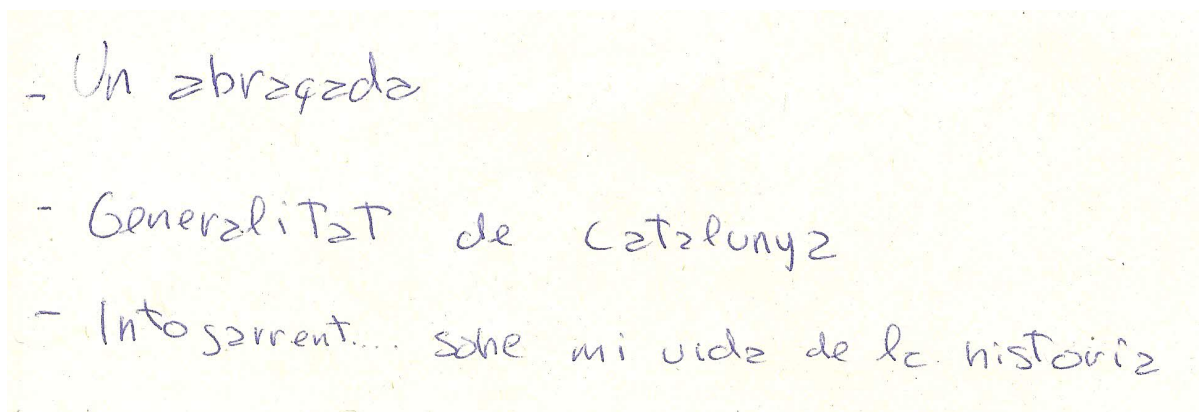 - Un abraçada
- Generalitat de Catalunya
- Intogarrent.... sobre mi vida de la historia